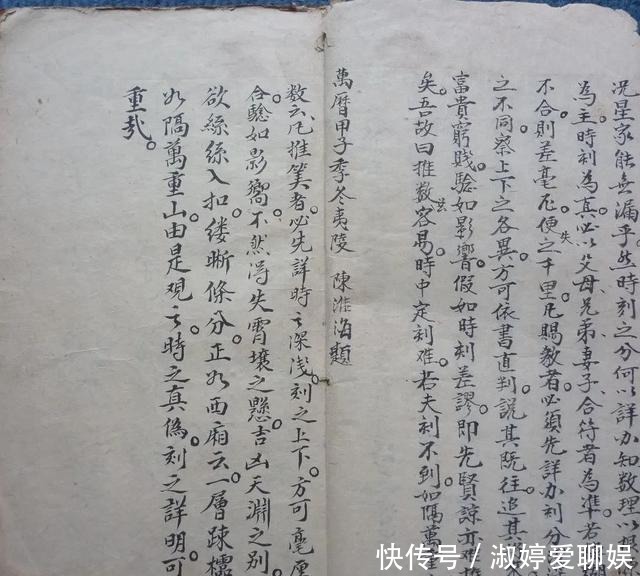 况星家能無漏乎然時刻之分何以詳亦知數理以
為主時刻為真必以父母兄弟妻子合符者為準若
不合則差毫厘便失之千里凡賜教者必須先詳亦刻分
之不同察上下之各異方可依書直判說其既往追其
富貴窮賤驗如影響假如時刻差謬即先賢諒亦難
矣吾故曰推数容易時中定刻难若夫刻不到如隔萬
萬曆甲子季冬夷陵 陳淮海題
数云凡推筭者必先詳時之深浅刻之上下方可毫厘
合驗如影嚮不然得失霄壤之懸吉凶天淵之别
欲絲絲入扣缕晰條分正如西廂云一層踈櫺
如隔萬重山由是观之時之真偽刻之詳明可
重哉
快传号/淑婷爱聊娱